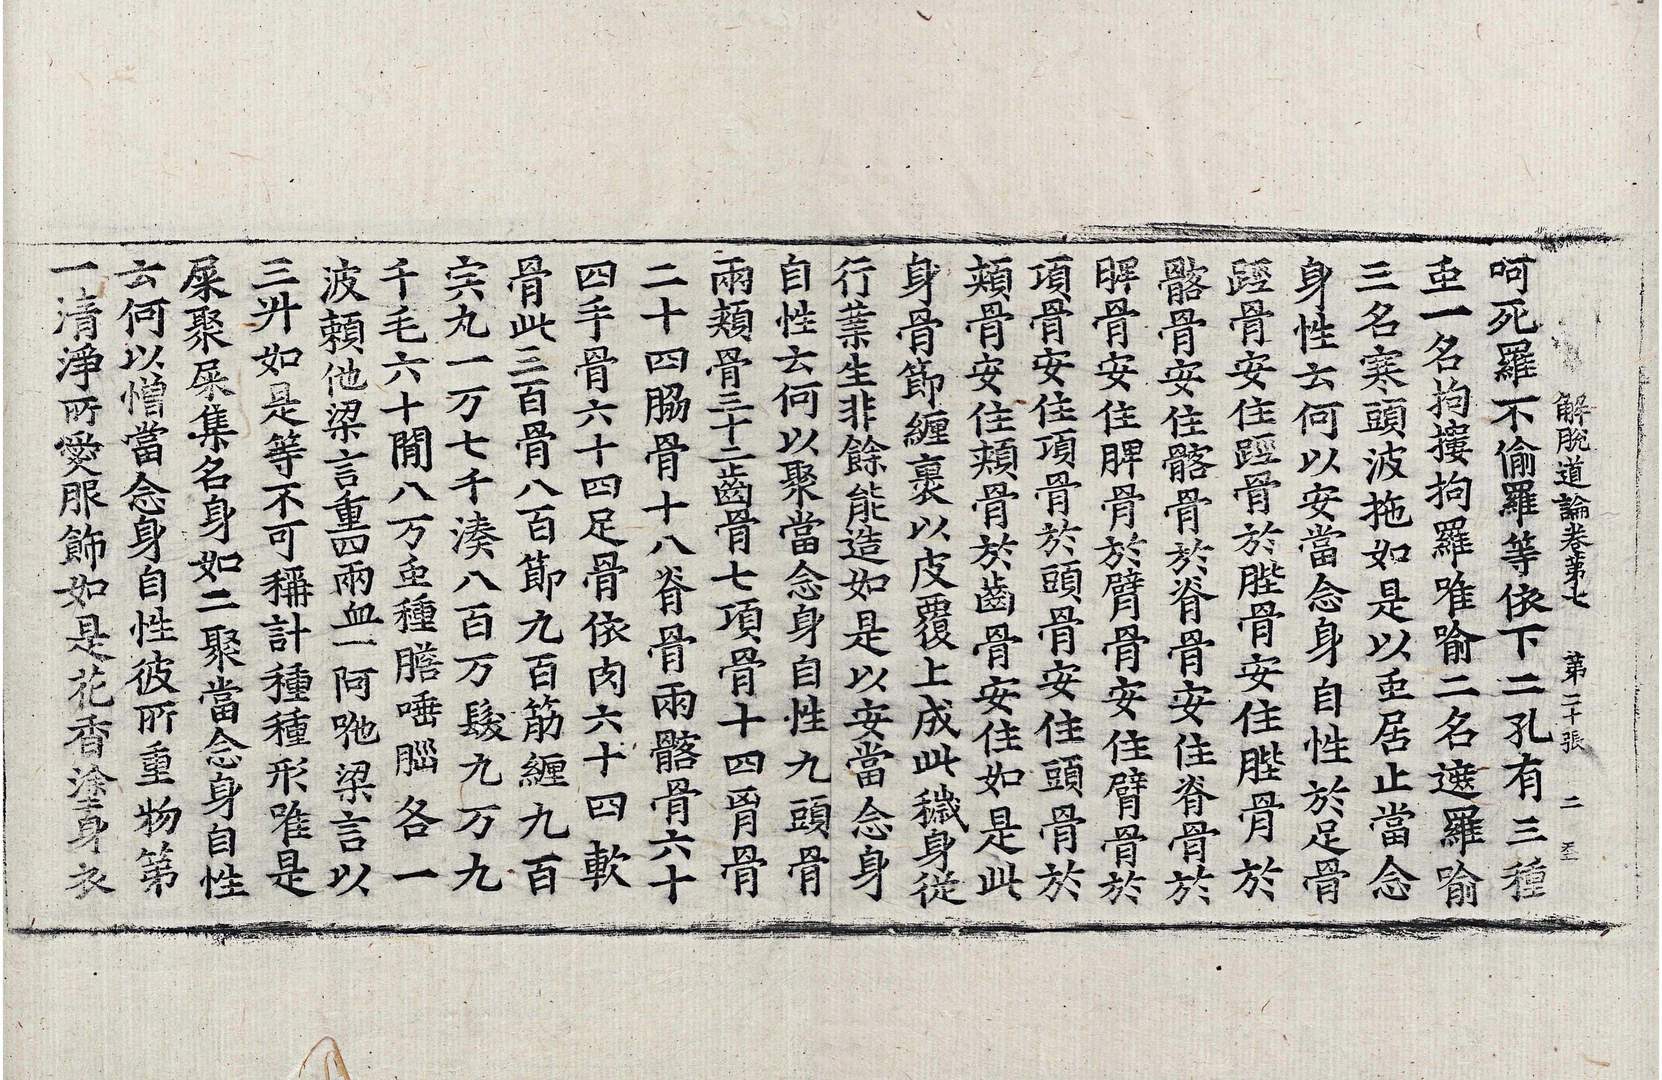 解脫道論卷第七 第二十張 二
呵死羅不偷羅等依下二孔有三種
䖝一名拘摟拘羅唯喻二名遮羅喻
三名寒頭波拖如是以䖝居止當念
身性云何以安當念身自性於足骨
踁骨安住踁骨於䏶骨安住䏶骨於
髂骨安住髂骨於脊骨安住脊骨於
髀骨安住髀骨於臂骨安住臂骨於
項骨安住項骨於頭骨安住頭骨於
頰骨安住頰骨於齒骨安住如是此
身骨節纏裹以皮覆上成此穢身從
行業生非餘能造如是以安當念身
自性云何以聚當念身自性九頭骨
兩頰骨三十二齒骨七項骨十四胷骨
二十四脇骨十八脊骨兩髂骨六十
四手骨六十四足骨依肉六十四軟
骨此三百骨八百節九百筋纏九百
宍丸一万七千湊八百万髮九万九
千毛六十閒八万䖝種膽唾𦛁各一
波賴他梁言重四兩血一阿咃梁言以
三升如是等不可稱計種種形唯是
屎聚屎集名身如二聚當念身自性
云何以憎當念身自性彼所重物第
一清淨所愛服飾如是花香塗身衣